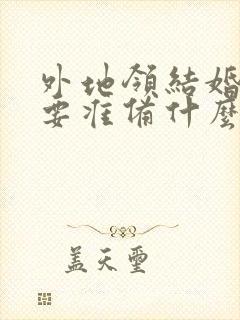 外地領結婚
要准備什麼
盖天璽